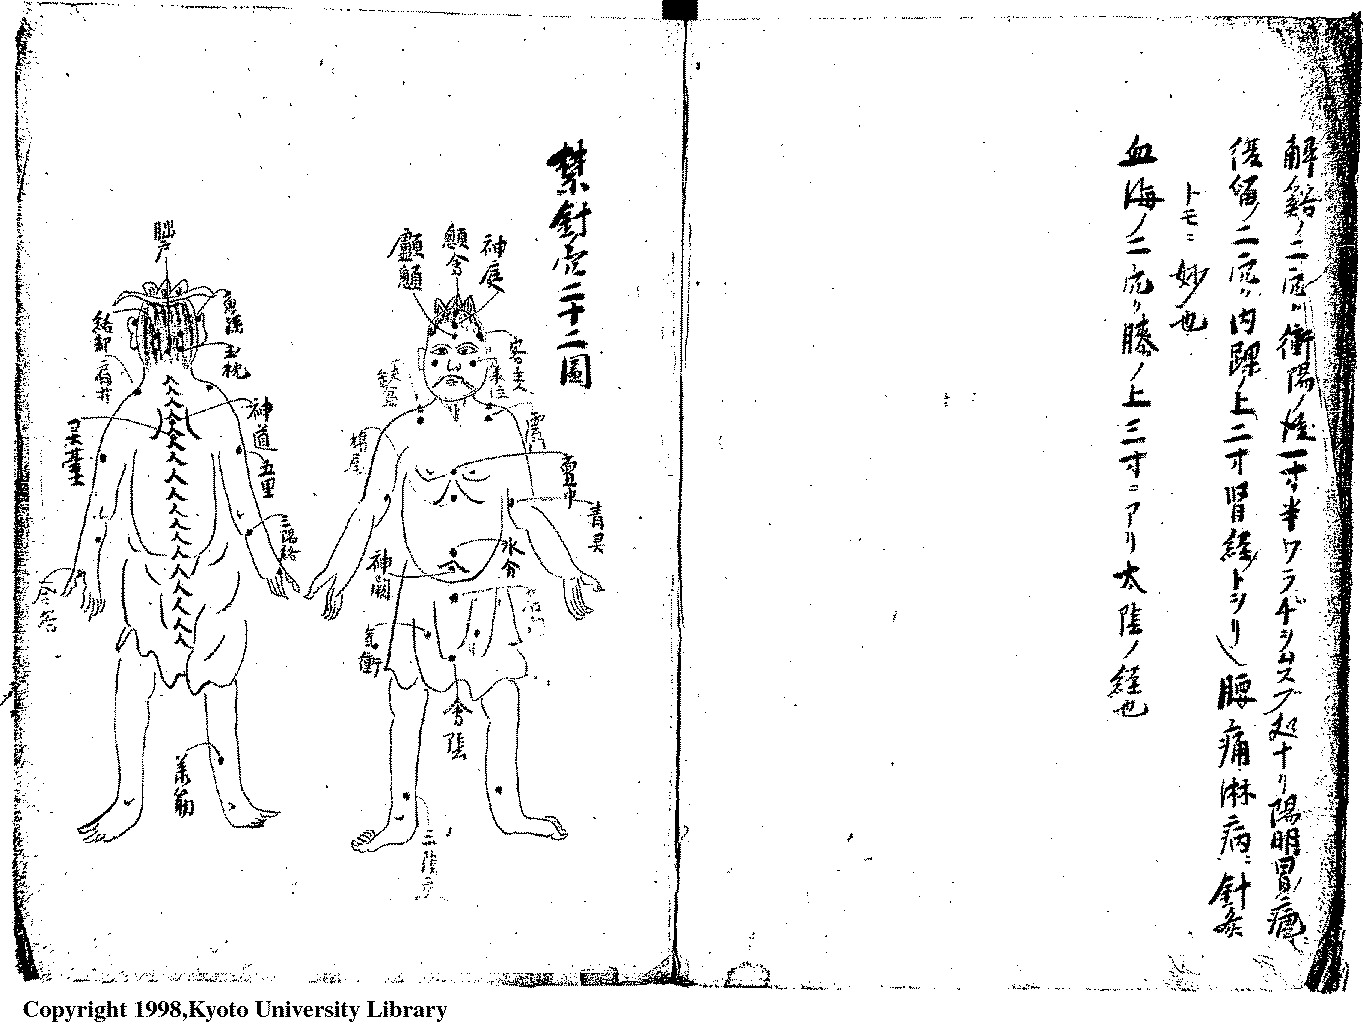 解谿ノ二穴ハ衝陽ノ後一寸半ワラヂ
陽明胃
復留ノ二穴ハ内踝ノ上二寸腎経トシリ腰痛淋病ニ針灸
トモニ妙也
血海ノ二穴ハ膝ノ上三寸ニアリ太陰ノ経也
禁針穴二十二圖
神庭
顖會
顱顖
客主
承泣
缺盆
雲
鳩尾
膻中
青灵
水分
神闕
石門
気衝
會陰
三陰交
脳戸
角孫
玉枕
絡却
肩井
神道
灵臺
五里
三陽絡
合谷
承筋
Copyright 1998,Kyoto University Library